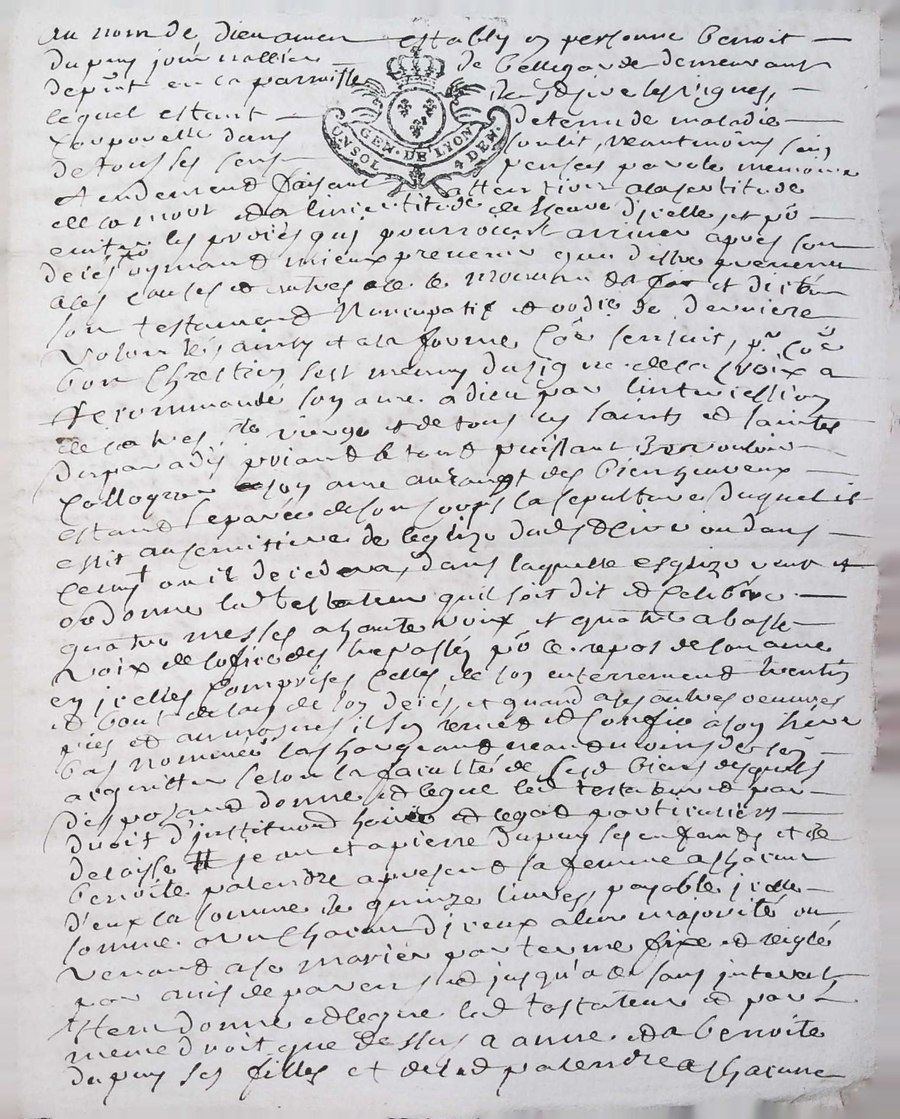 Au nom de dieu amen estably en personne benoit
dupuy journallier de bellegarde demeurant
depnt en la parroisse St dive les vignes,
lequel estant detenu de maladie
corporelle dans son lit, neantmoins sain
de tous ses sens pensées parole memoire
et endement faisant attention a la certitude
de la mort et a l'incertitude de l'heure d'icelle et po
eviter les procès qui pourroient arriver apres son
deces aymant mieux prevenir que d'estre prevenu
a ces causes et autres a de le mouvant a fait et dicté
son testament Noncupatif et ordce de derniere
volonté, ainsy et a la forme coe sensuit, pnt coe
bon Chrestien s'est meuny du signe de la Croix a
recommandé son ame a dieu par l'intercession
de la tres ste vierge et de tous les saints et saintes
du paradis priant le tout puissant de vouloir
colloquer son ame au rang des bienheureux
estant separée de son corps la sepulture duquel il
eslit au cemittiere de leglize dud St dive ou dans
celuy ou il decedera, dans laquelle esglize veut et
ordonne led testateur quil soit dit et celebré
quatre messes a haute voix et quatre a basse
voix de loffice des trepassés po le repos de son ame
en icelles comprises celles de son enterrement trentin
et bout de lan de son deces, et quand a ses autres oeuvres
pies et aumosnes il sen remet et confie a son heire
bas nommé la chargeant neanmoins de son
acquitter selon la faculté de sesd biens desquels
disposant donne et legue led testateur et par
droit d'institution heire et legat particuliers
delaisse a jean et a pierre dupuy ses enfants et de
benoite palendre apresent sa femme a chacun
d'eux la somme de quinze livres, payable icelle
somme a un chacun d'iceux a leur majorité ou
venant a se marier par terme fixe et reiglé
par avis de parens et jusqu'a ce sans interest
Item donne et legue led testateur et par
meme droit que dessus a anne et a benoite
dupuy ses filles et de lad palendre a chacune
GEN. DE LYON
UN SOL 4 DEN.